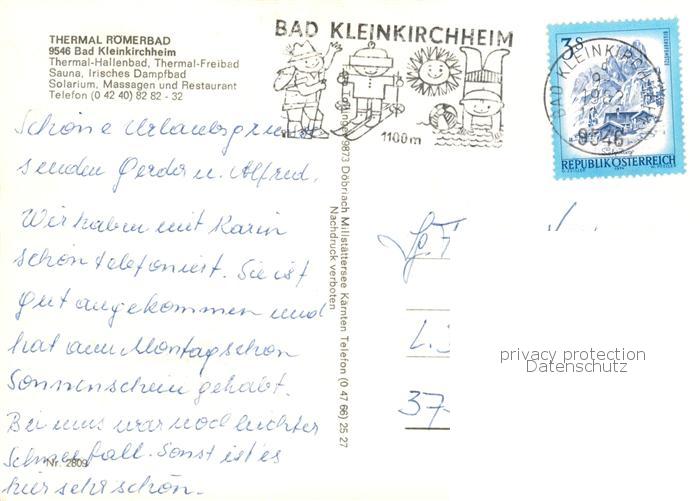 THERMAL RÖMERBAD
9546 Bad Kleinkirchheim
Thermal-Hallenbad, Thermal-Freibad
Sauna, Irisches Dampfbad
Solarium, Massagen und Restaurant
Telefon (0 42 40) 82 82 - 32
BAD KLEINKIRCHHEIM
1100m
3S
REPUBLIK ÖSTERREICH
BAD KLEINKIRCH
9546
Schöne Urlaubsgrüsse
senden Gerda u. Alfred.
Wir haben mit Karin
schon telefoniert. Sie ist
gut angekommen und
hat am Montag schon
Sonnenschein gehabt.
Bei uns war noch leichter
Schneefall. Sonst ist es
hier sehr schön.
Nr. 2809
9873 Döbriach Millstättersee Kärnten Telefon (0 47 66) 25 27
Nachdruck verboten
37-
privacy protection
Datenschutz